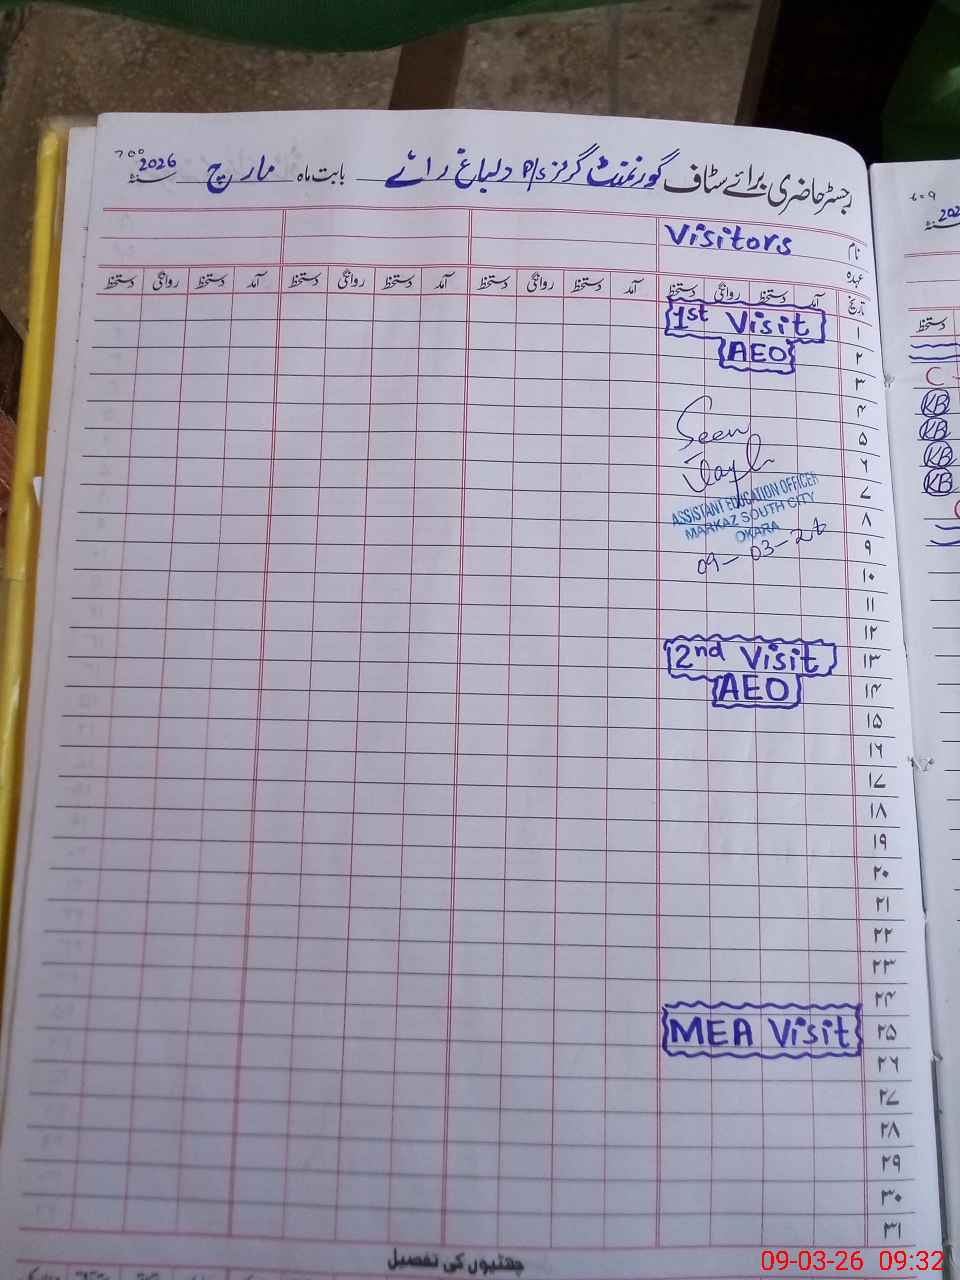 رجسٹر حاضری برائے سٹاف گورنمنٹ گرلز P/S دلباغ رائے بابت ماہ مارچ 2026 سنۃ
نام Visitors
عہدہ
تاریخ آمد دستخط روانگی دستخط آمد دستخط روانگی دستخط آمد دستخط روانگی دستخط آمد دستخط روانگی دستخط
دستخط
۱ 1st Visit
۲ AEO
۳
C
۴
KB
۵ Seen
KB
۶
KB
۷
KB
ASSISTANT EDUCATION OFFICER
۸ MARKAZ SOUTH CITY
OKARA
۹ 09-03-26
۱۰
۱۱
۱۲
۱۳ 2nd Visit
۱۴ AEO
۱۵
۱۶
۱۷
۱۸
۱۹
۲۰
۲۱
۲۲
۲۳
۲۴
۲۵ MEA Visit
۲۶
۲۷
۲۸
۲۹
۳۰
۳۱
چھٹیوں کی تفصیل
09-03-26 09:32